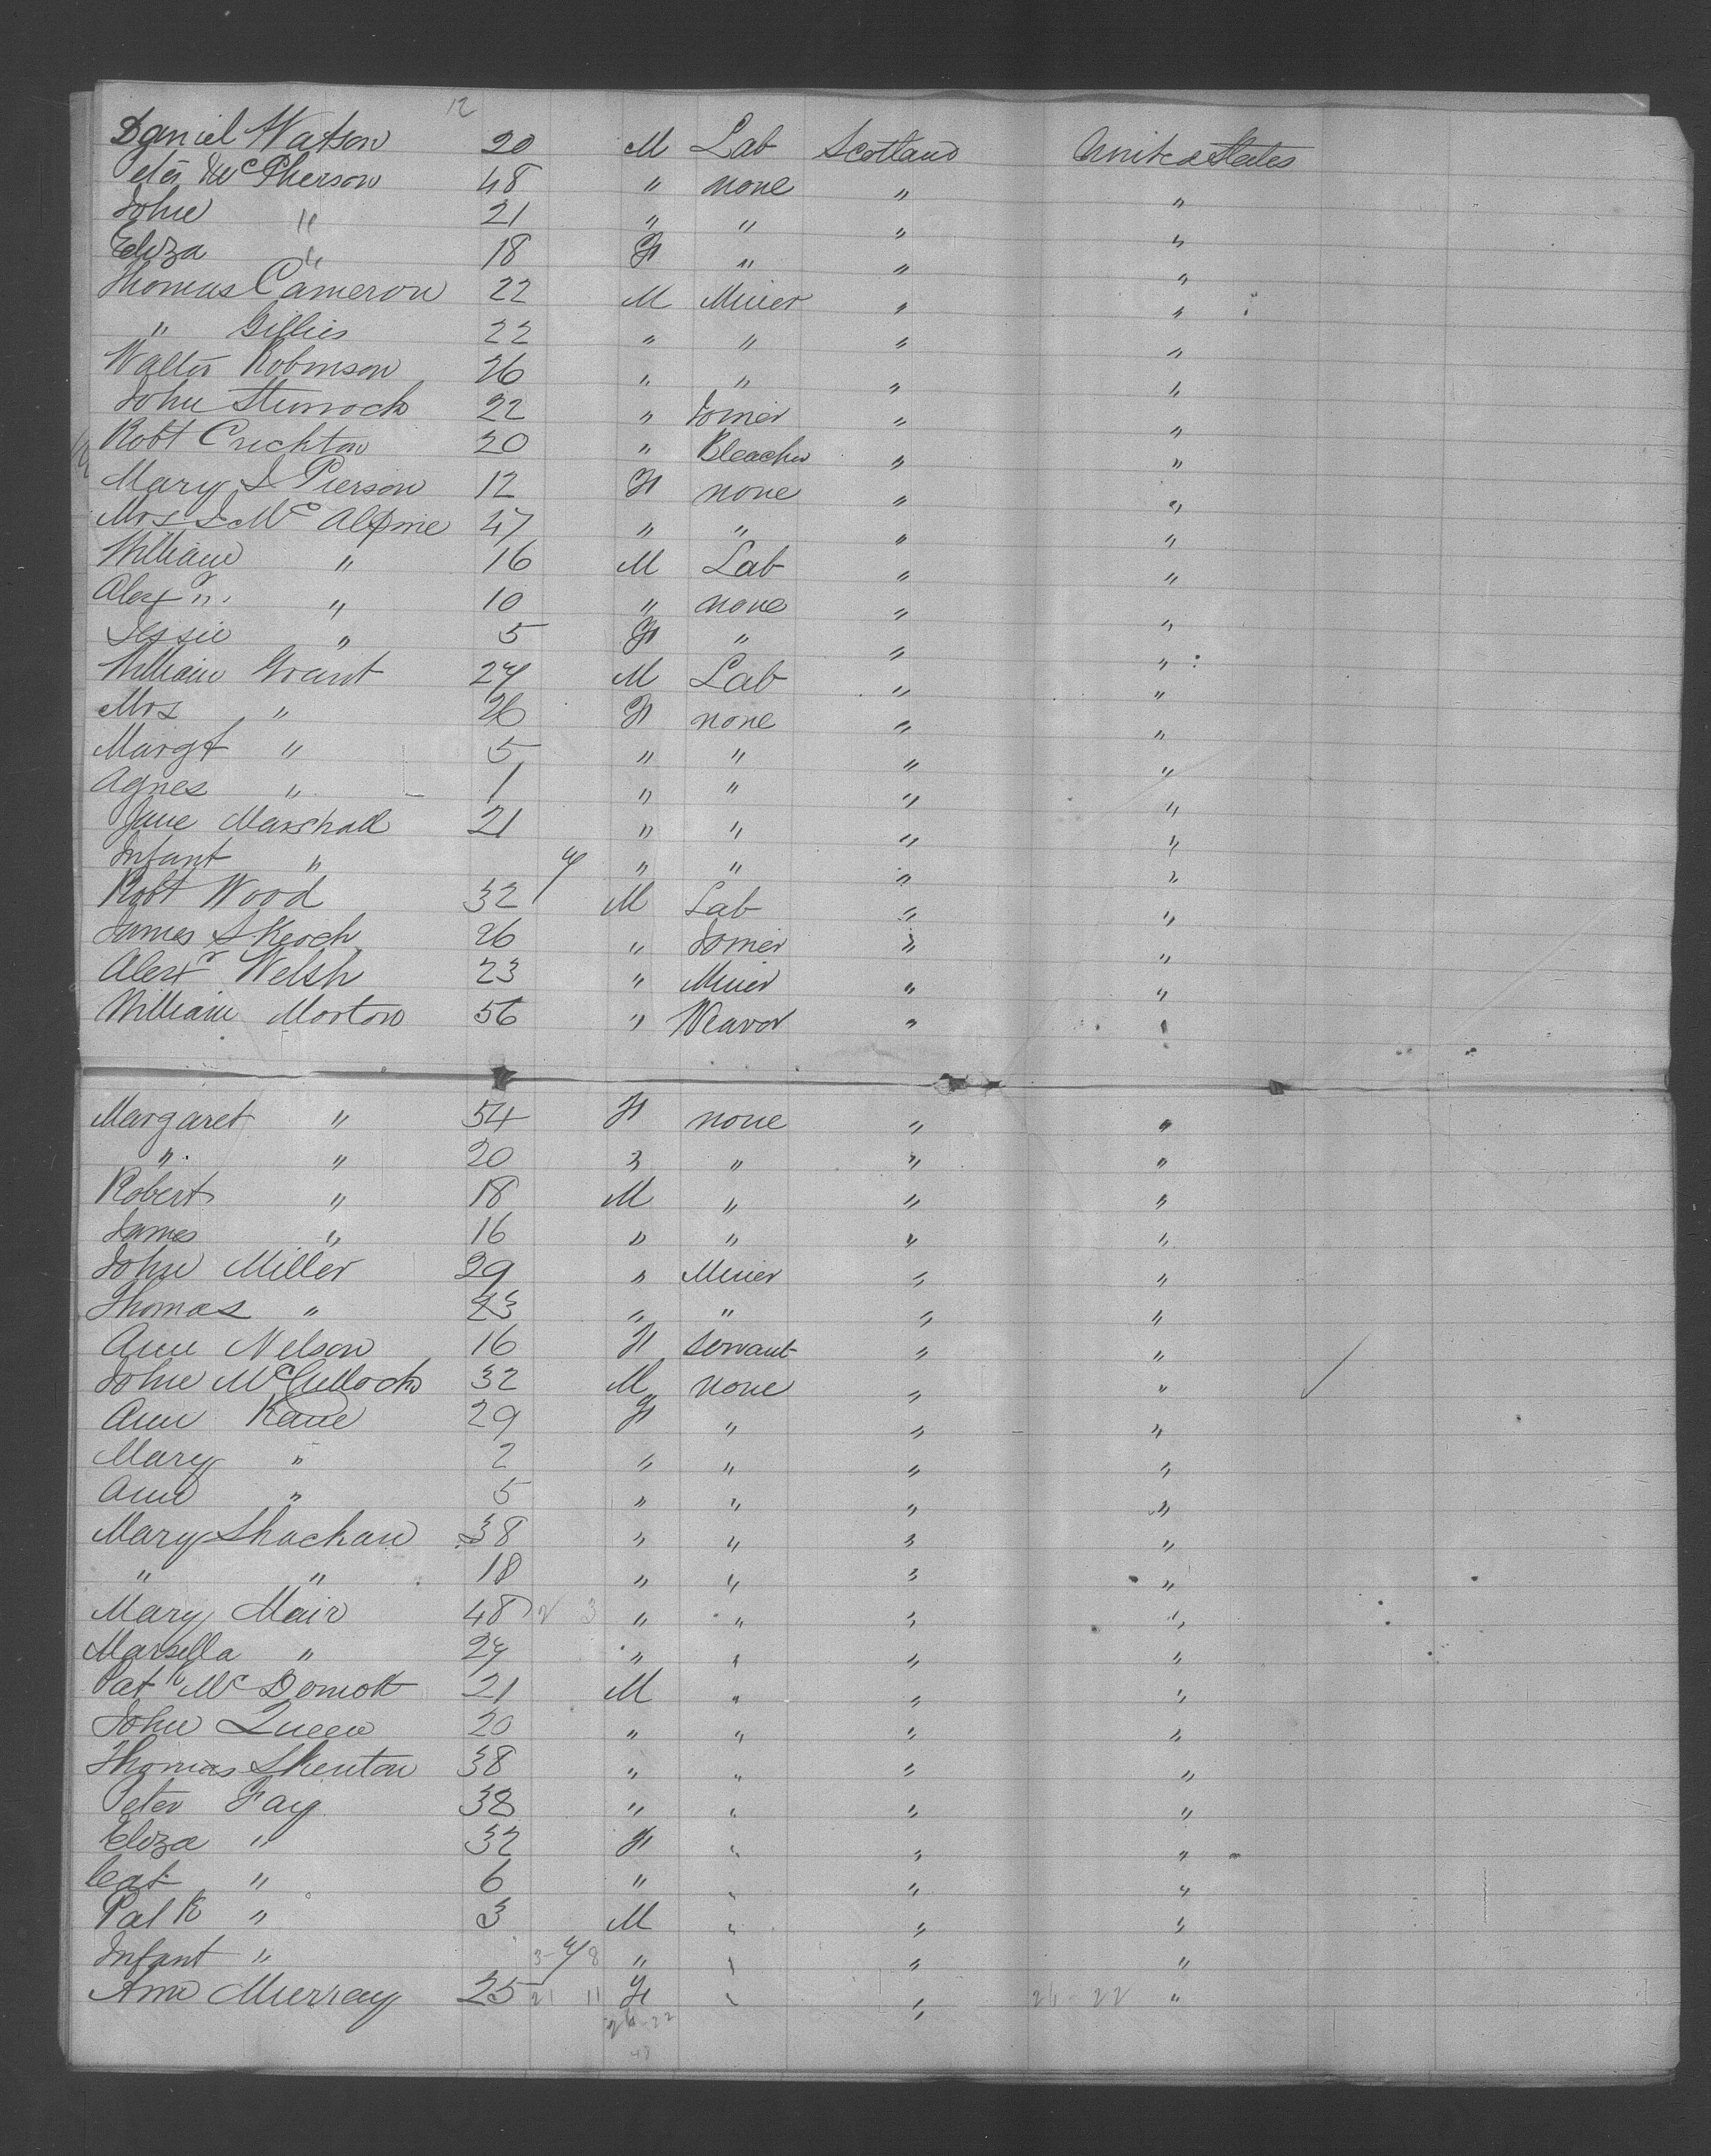 12
Daniel Watson 20 M Lab Scotland United States
Peter McPherson 48 " none " "
John " 21 " " " "
Eliza " 18 F " " "
Thomas Cameron 22 M Miner " "
" Gillies 22 " " " "
Walter Robinson 26 " " " "
John Sturrock 22 " Joiner " "
Robt Crichton 20 " Bleacher " "
Mary I Pierson 12 F none " "
Mrs I McAlpine 47 " " " "
William " 16 M Lab " "
Alexr " 10 " none " "
Jessie " 5 F " " "
William Grant 24 M Lab " "
Mrs " 26 F none " "
Margt " 5 " " " "
Agnes " 1 " " " "
Jane Marshall 21 " " " "
Infant " " " " "
Robt Wood 32 M Lab " "
James Skeoch 26 " Joiner " "
Alexr Welsh 23 " Miner " "
William Morton 56 " Weaver " "
Margaret " 54 F none " "
" " 20 " " " "
Robert " 18 M " " "
James " 16 " " " "
John Miller 29 " Miner " "
Thomas " 23 " " " "
Ann Nelson 16 F servant " "
John McCullock 32 M none " "
Ann Kane 29 F " " "
Mary " 2 " " " "
Ann " 5 " " " "
Mary Shackan 38 " " " "
" " 18 " " " "
Mary Mair 48 2 3 " " " "
Marsella " 24 " " " "
Patk McDomott 21 M " " "
John Queen 20 " " " "
Thomas Skenton 38 " " " "
Peter Fay 38 " " " "
Eliza " 32 F " " "
Cat " 6 " " " "
Patk " 3 M " " "
Infant " 3 8 " " " "
Ann Murray 25 21 11 F " " 26-22 "
26-22
48